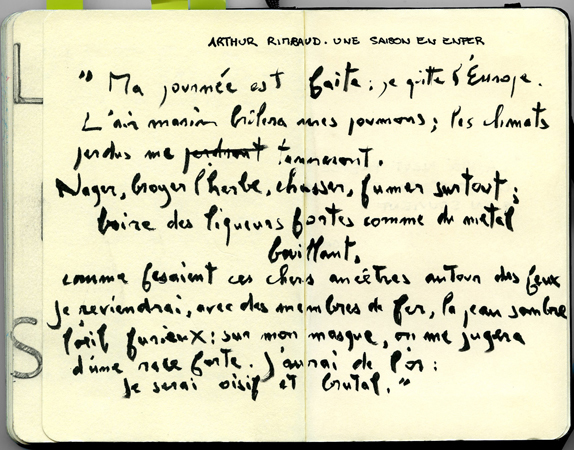 ARTHUR RIMBAUD. UNE SAISON EN ENFER
" Ma journée est faite ; je quitte l'Europe.
L'air marin brûlera mes poumons ; les climats
perdus me perdront tanneront.
Nager, broyer l'herbe, chasser, fumer surtout ;
boire des liqueurs fortes comme du metal
bouillant.
comme fesaient ces chers ancêtres autour des feux
Je reviendrai, avec des membres de fer, la peau sombre
l'œil furieux : sur mon masque, on me jugera
d'une race forte. J'aurai de l'or :
je serai oisif et brutal."
L
S